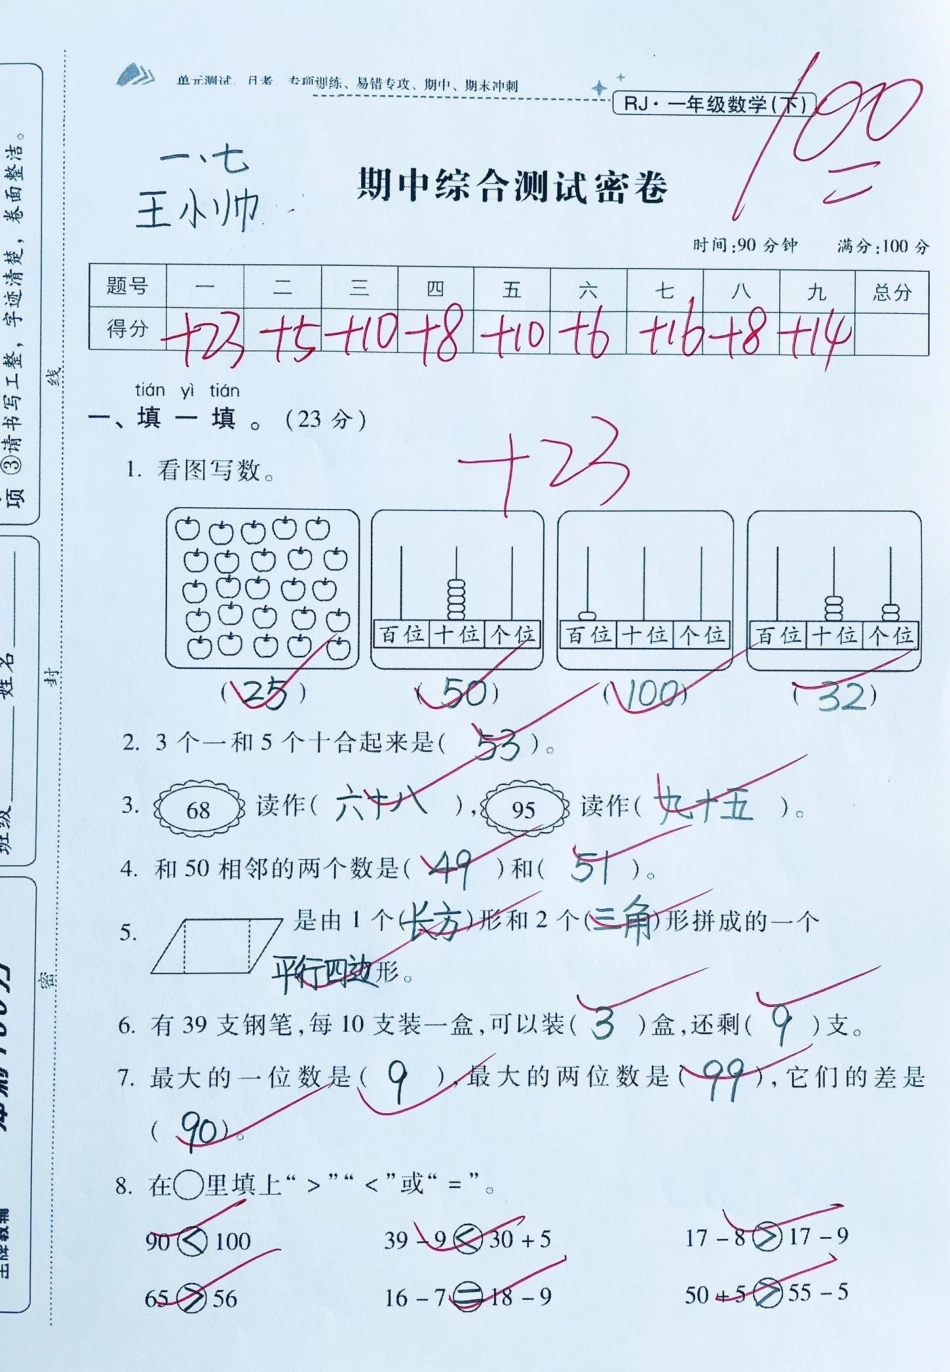 单元测试、月考、专项训练、易错专攻、期中、期末冲刺
RJ·一年级数学(下)
100
一、七
王小帅
期中综合测试密卷
时间:90分钟 满分:100分
题号 一 二 三 四 五 六 七 八 九 总分
得分 +23 +5 +10 +8 +10 +6 +16 +8 +14
tián yì tián
一、填一填。(23分)
+23
1. 看图写数。
百位 十位 个位 百位 十位 个位 百位 十位 个位
(25) (50) (100) (32)
2. 3个一和5个十合起来是(53)。
3. 68 读作(六十八), 95 读作(九十五)。
4. 和50相邻的两个数是(49)和(51)。
5. 是由1个(长方)形和2个(三角)形拼成的一个
平行四边形。
6. 有39支钢笔,每10支装一盒,可以装(3)盒,还剩(9)支。
7. 最大的一位数是(9),最大的两位数是(99),它们的差是
(90)。
8. 在○里填上“>”“<”或“=”。
90<100 39-9<30+5 17-8>17-9
65>56 16-7=18-9 50+5>55-5
项 ③请书写工整,字迹清楚,卷面整洁。
姓名
班级
线
封
密